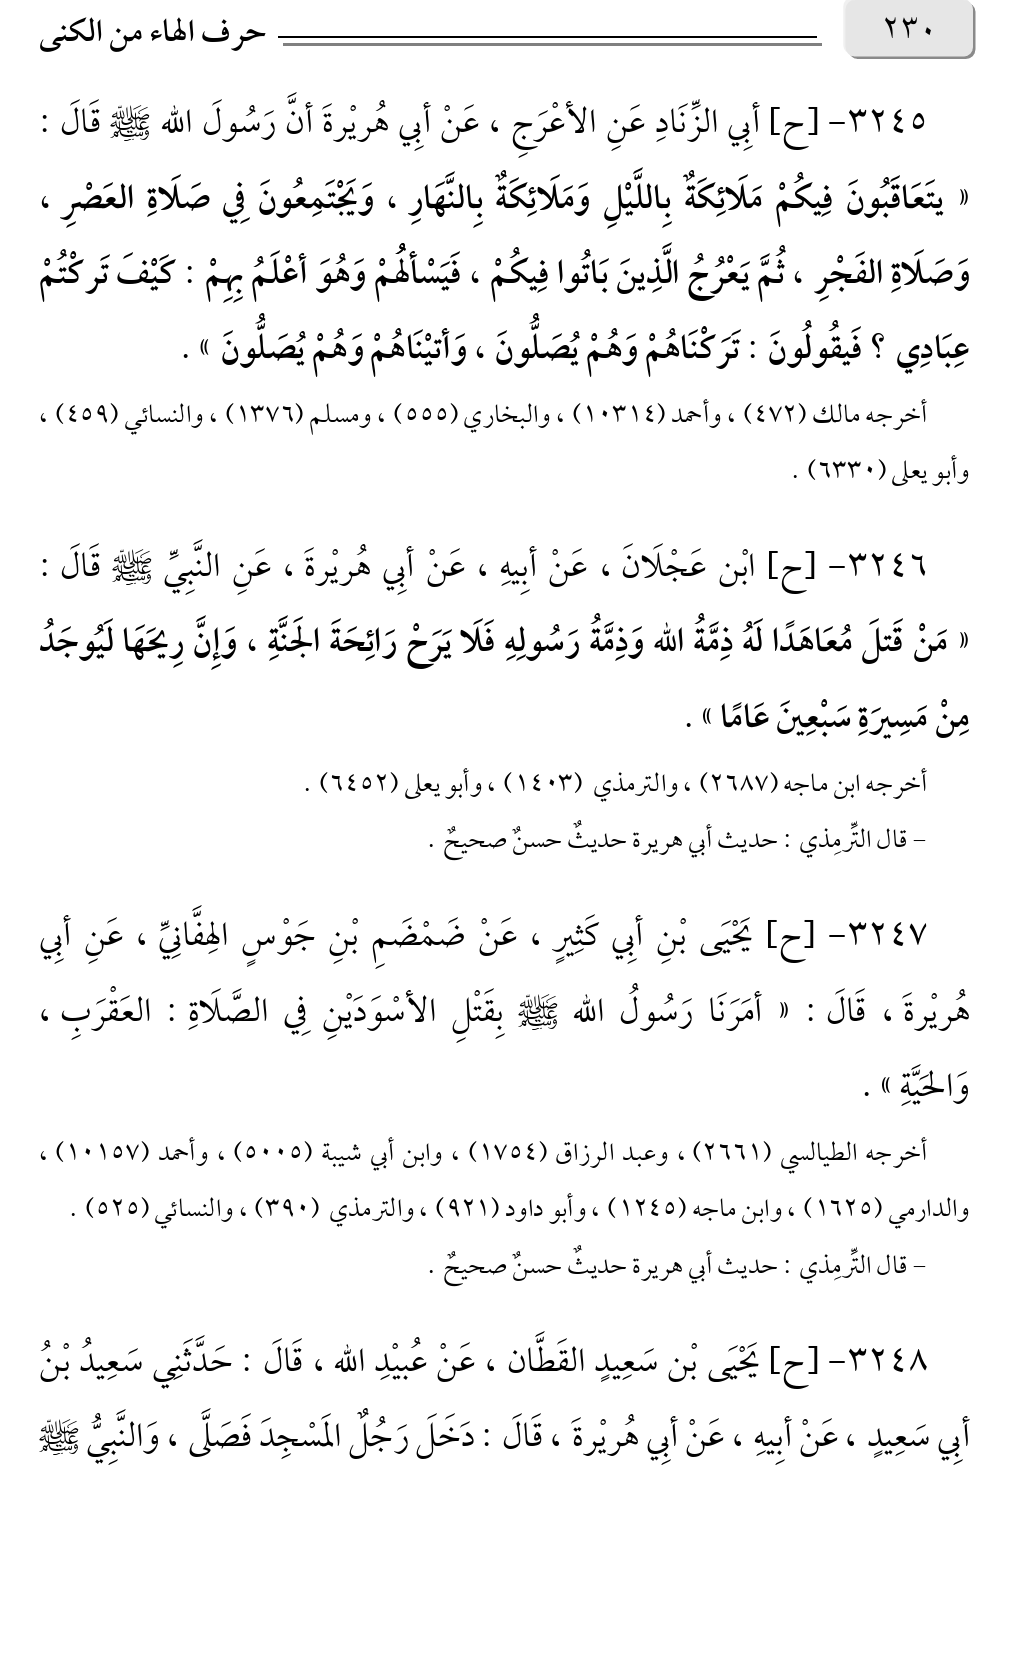 ٢٣٠
حرف الهاء من الكنى
٣٢٤٥- [ح] أبِي الزِّنَادِ عَنِ الأعْرَجِ ، عَنْ أبِي هُريْرةَ أنَّ رَسُولَ الله ﷺ قَالَ :
« يتَعَاقَبُونَ فِيكُمْ مَلَائِكَةٌ بِاللَّيْلِ وَمَلَائِكَةٌ بِالنَّهَارِ ، وَيَجْتَمِعُونَ فِي صَلَاةِ العَصْرِ ،
وَصَلَاةِ الفَجْرِ ، ثُمَّ يَعْرُجُ الَّذِينَ بَاتُوا فِيكُمْ ، فَيَسْألُهُمْ وَهُوَ أعْلَمُ بِهِمْ : كَيْفَ تَركْتُمْ
عِبَادِي ؟ فَيقُولُونَ : تَرَكْنَاهُمْ وَهُمْ يُصَلُّونَ ، وَأتيْنَاهُمْ وَهُمْ يُصَلُّونَ » .
أخرجه مالك (٤٧٢) ، وأحمد (١٠٣١٤) ، والبخاري (٥٥٥) ، ومسلم (١٣٧٦) ، والنسائي (٤٥٩) ،
وأبو يعلى (٦٣٣٠) .
٣٢٤٦- [ح] ابْن عَجْلَانَ ، عَنْ أبِيهِ ، عَنْ أبِي هُريْرةَ ، عَنِ النَّبِيِّ ﷺ قَالَ :
« مَنْ قَتلَ مُعَاهَدًا لَهُ ذِمَّةُ الله وَذِمَّةُ رَسُولِهِ فَلَا يَرَحْ رَائِحَةَ الجَنَّةِ ، وَإِنَّ رِيحَهَا لَيُوجَدُ
مِنْ مَسِيرَةِ سَبْعِينَ عَامًا » .
أخرجه ابن ماجه (٢٦٨٧) ، والترمذي (١٤٠٣) ، وأبو يعلى (٦٤٥٢) .
- قال التِّرمِذي : حديث أبي هريرة حديثٌ حسنٌ صحيحٌ .
٣٢٤٧- [ح] يَحْيَى بْنِ أبِي كَثِيرٍ ، عَنْ ضَمْضَمِ بْنِ جَوْسٍ الهِفَّانِيِّ ، عَنِ أبِي
هُريْرةَ ، قَالَ : « أمَرَنَا رَسُولُ الله ﷺ بِقَتْلِ الأسْوَدَيْنِ فِي الصَّلَاةِ : العَقْرَبِ ،
وَالحَيَّةِ » .
أخرجه الطيالسي (٢٦٦١) ، وعبد الرزاق (١٧٥٤) ، وابن أبي شيبة (٥٠٠٥) ، وأحمد (١٠١٥٧) ،
والدارمي (١٦٢٥) ، وابن ماجه (١٢٤٥) ، وأبو داود (٩٢١) ، والترمذي (٣٩٠) ، والنسائي (٥٢٥) .
- قال التِّرمِذي : حديث أبي هريرة حديثٌ حسنٌ صحيحٌ .
٣٢٤٨- [ح] يَحْيَى بْن سَعِيدٍ القَطَّان ، عَنْ عُبيْدِ الله ، قَالَ : حَدَّثَنِي سَعِيدُ بْنُ
أبِي سَعِيدٍ ، عَنْ أبِيهِ ، عَنْ أبِي هُريْرةَ ، قَالَ : دَخَلَ رَجُلٌ المَسْجِدَ فَصَلَّى ، وَالنَّبِيُّ ﷺ